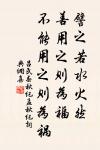 譬之若水火然
善用之则為福
不能用之则為禍
吕氏春秋纪孟秋纪荡
兵佩集